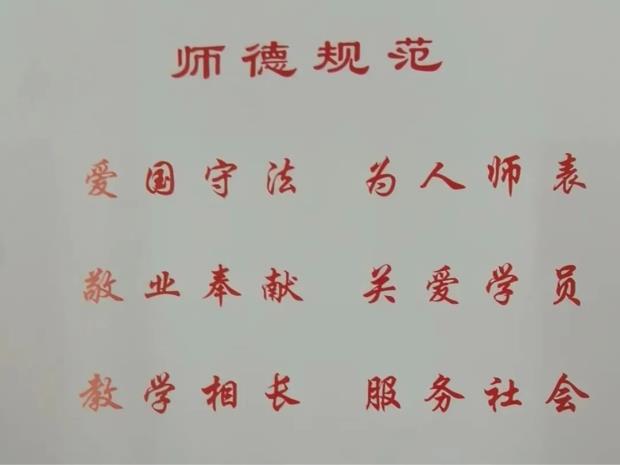 师德规范
爱国守法 为人师表
敬业奉献 关爱学员
教学相长 服务社会